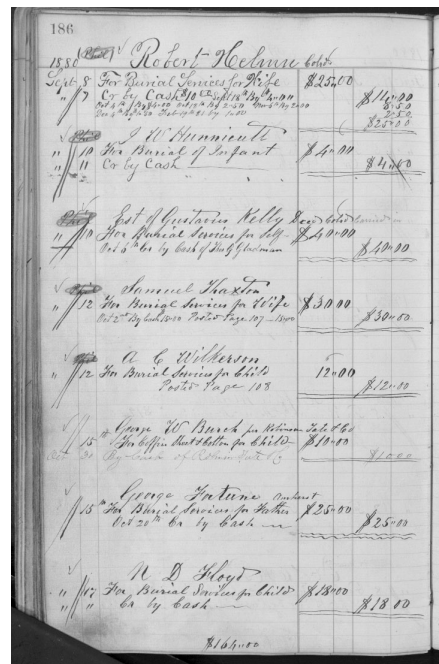 186
1880 Paid Robert Helm Cold
Sept 8 For Burial Services for Wife $25.00
" 9 Cr by Cash $10.00 Sept 18th By $11.00
Oct By By 2.50
By 1.00 $25.00
J W Hunnicutt
" 10 For Burial of Infant $4.00
" 11 Cr by Cash " $4.00
Est of Gustavus Kelly Decd Cold
" 10 For Burial Services for Self $40.00
Oct 6th Cr by Cash of Gladman $40.00
Samuel Thaxton
" 12 For Burial Services for Wife $30.00
Oct 2nd By Cash 15.00 Posted Page 107 — 15.00 $30.00
A C Wilkerson
" 12 For Burial Services for Child 12.00
Posted Page 108 $12.00
George W Burch per Robinson Tate & Co
" 15th For Coffin for Child $10.00
Oct By Cash of $10.00
George Fortune Amherst
" 15th For Burial Services for Father $25.00
Oct 20th Cr by Cash $25.00
N D Floyd
" 17 For Burial Services for Child $18.00
" " Cr by Cash $18.00
$164.00